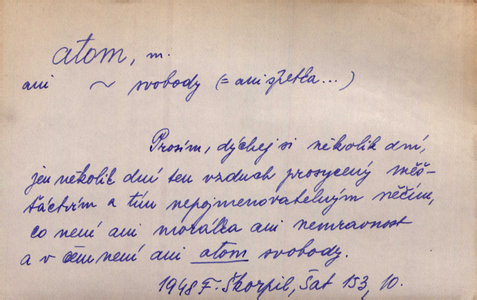 atom, m.
ani ~ svobody (= ani zbla...)
Prosím, dýchej si několik dní,
jen několik dní ten vzduch prosycený měš-
ťáctvím a tím nepojmenovatelným něčím,
co není ani morálka ani nemravnost
a v čem není ani atom svobody.
1948 F. Škorpil, Šat 153, 10.